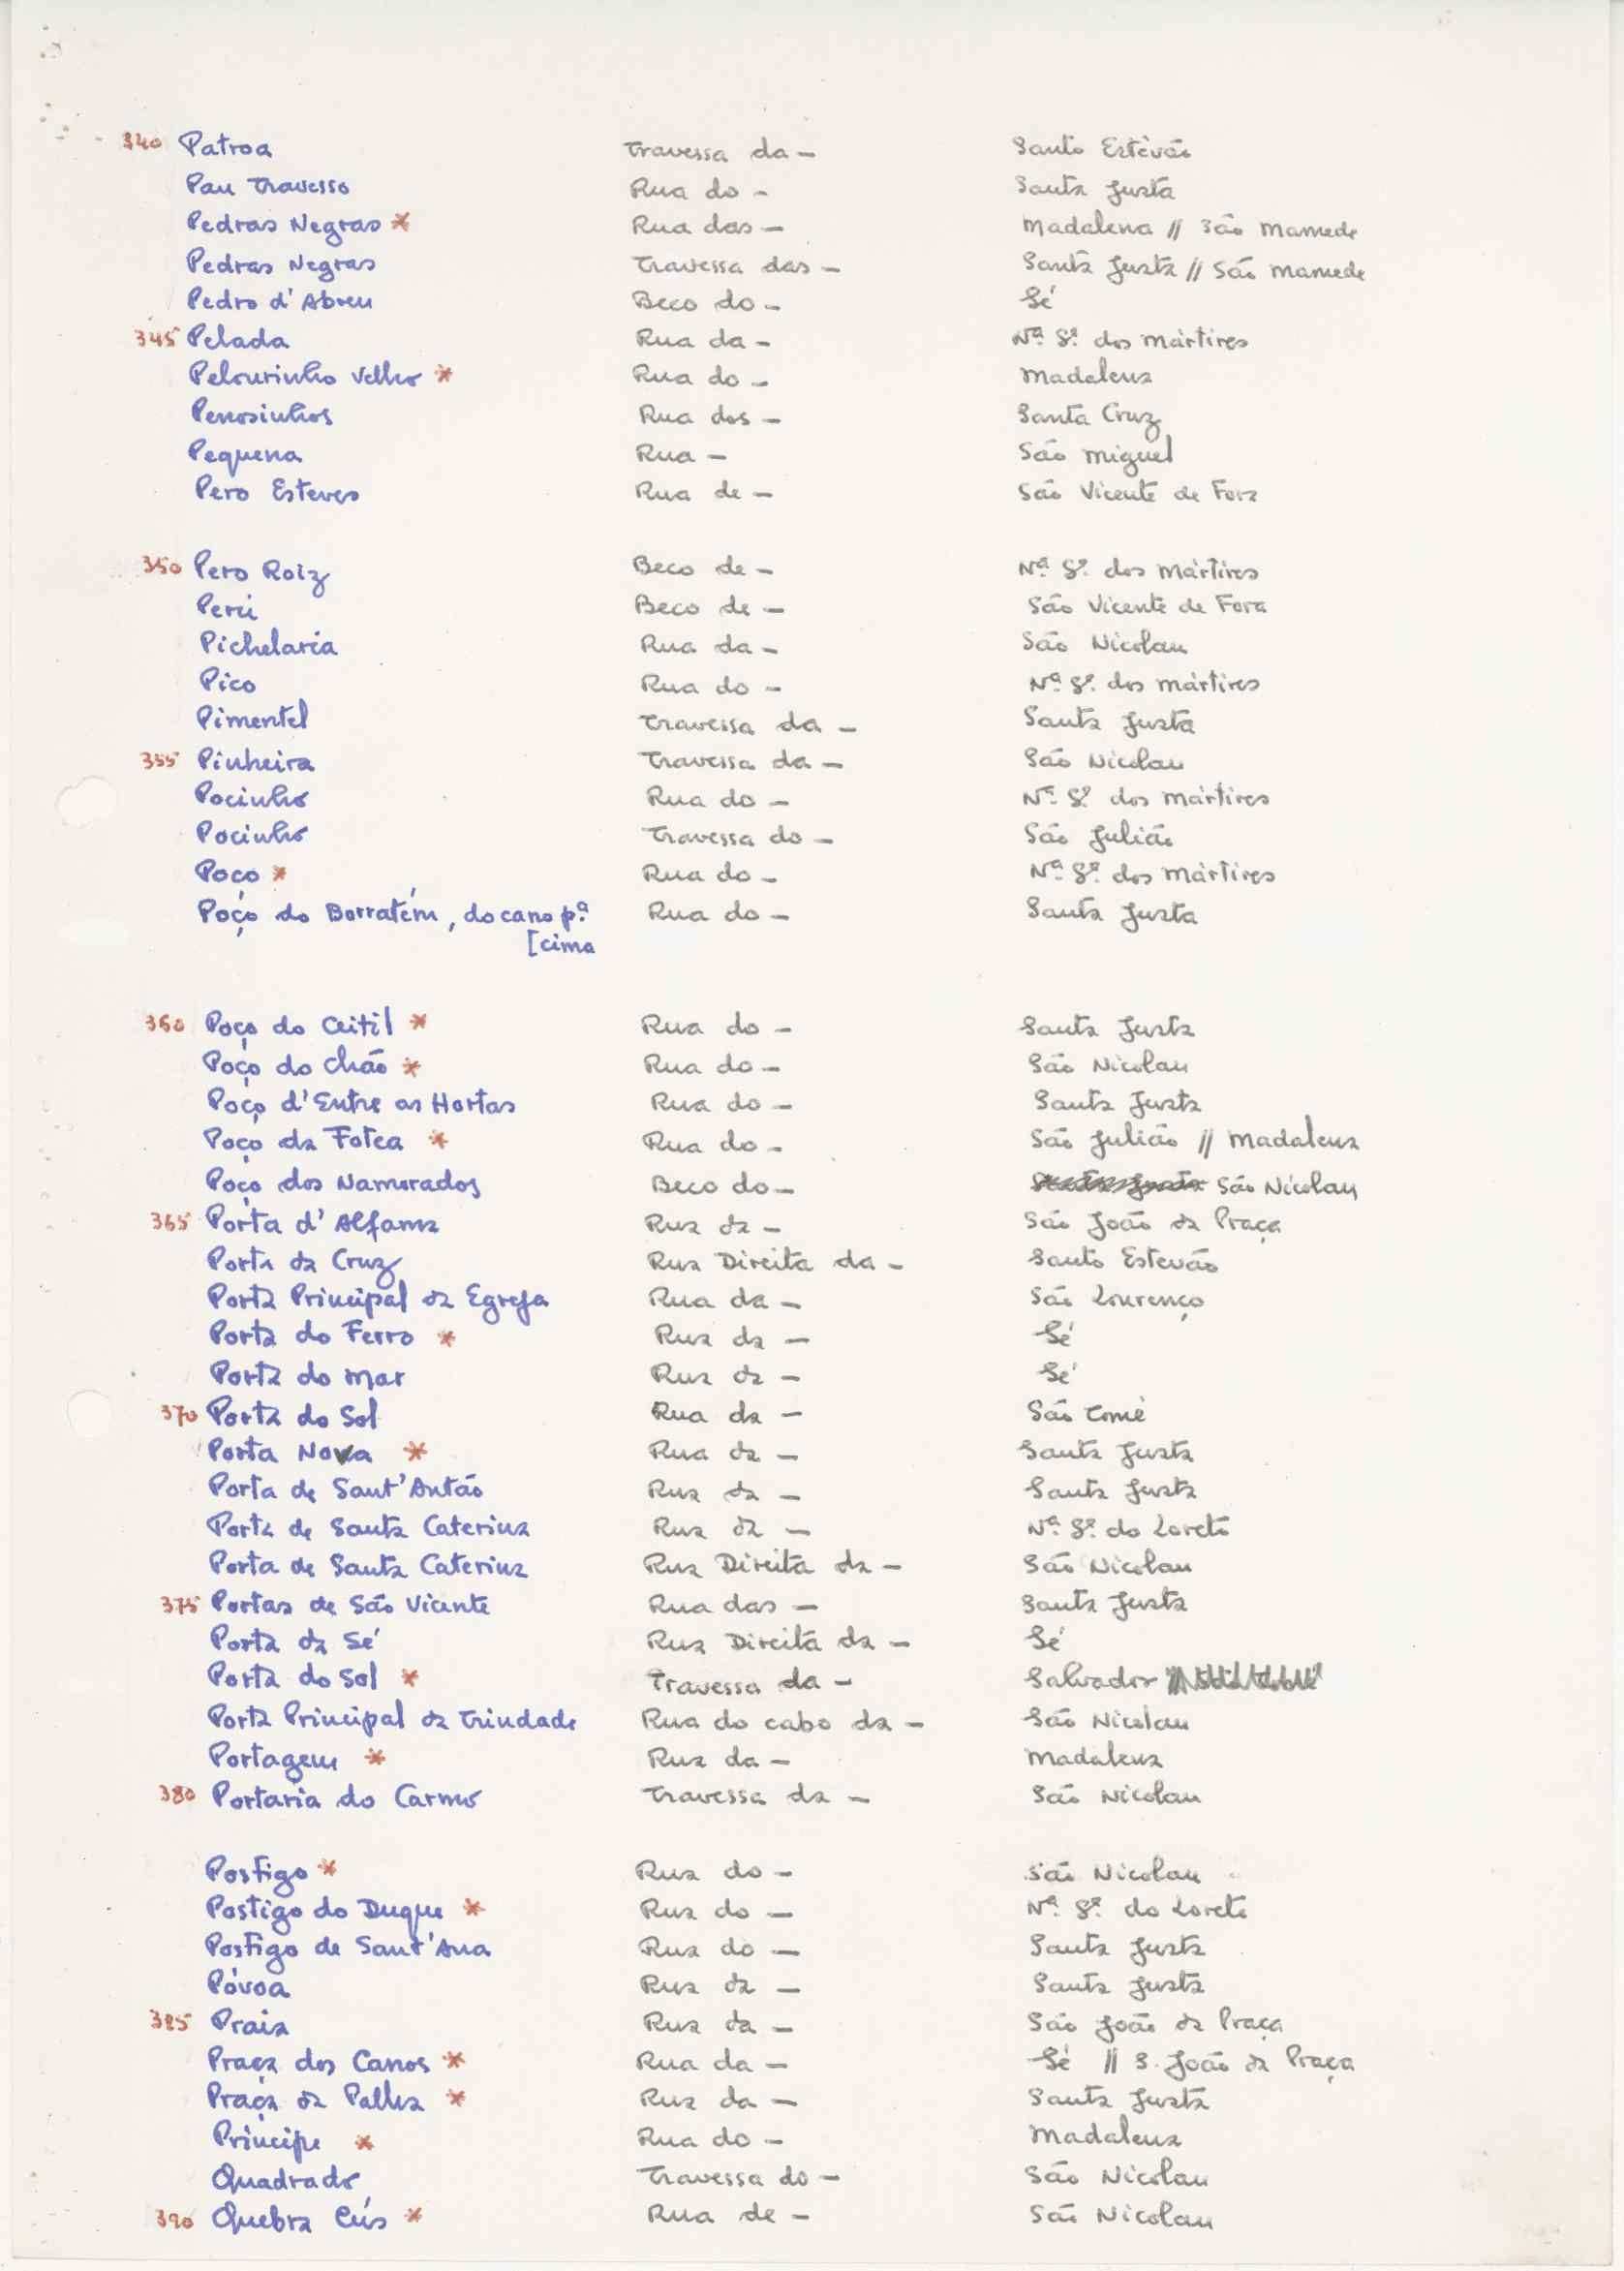 340 Patroa Travessa da - Santo Estêvão
Pau Travesso Rua do - Santa Justa
Pedras Negras * Rua das - Madalena // São Mamede
Pedras Negras Travessa das - Santa Justa // São Mamede
Pedro d'Abreu Beco do - Sé
345 Pelada Rua da - Nª Sª dos Mártires
Pelourinho Velho * Rua do - Madalena
Penosinhos Rua dos - Santa Cruz
Pequena Rua - São Miguel
Pero Esteves Rua de - São Vicente de Fora
350 Pero Roiz Beco de - Nª Sª dos Mártires
Perú Beco de - São Vicente de Fora
Pichelaria Rua da - São Nicolau
Pico Rua do - Nª Sª dos Mártires
Pimentel Travessa da - Santa Justa
355 Pinheira Travessa da - São Nicolau
Pocinho Rua do - Nª Sª dos Mártires
Pocinho Travessa do - São Julião
Poço * Rua do - Nª Sª dos Mártires
Poço do Borratém, do cano pª Rua do - Santa Justa
[cima
360 Poço do Ceitil * Rua do - Santa Justa
Poço do Chão * Rua do - São Nicolau
Poço d'Entre as Hortas Rua do - Santa Justa
Poço da Fotea * Rua do - São Julião // Madalena
Poço dos Namorados Beco do - São Nicolau
365 Porta d'Alfama Rua da - São João da Praça
Porta da Cruz Rua Direita da - Santo Estevão
Porta Principal da Egreja Rua da - São Lourenço
Porta do Ferro * Rua da - Sé
Porta do Mar Rua da - Sé
370 Porta do Sol Rua da - São Tomé
Porta Nova * Rua da - Santa Justa
Porta de Sant'Antão Rua da - Santa Justa
Porta de Santa Caterina Rua da - Nª Sª do Loreto
Porta de Santa Caterina Rua Direita da - São Nicolau
375 Portas de São Vicente Rua das - Santa Justa
Porta da Sé Rua Direita da - Sé
Porta do Sol * Travessa da - Salvador
Porta Principal da Trindade Rua do cabo da - São Nicolau
Portagem * Rua da - Madalena
380 Portaria do Carmo Travessa da - São Nicolau
Postigo * Rua do - São Nicolau
Postigo do Duque * Rua do - Nª Sª do Loreto
Postigo de Sant'Ana Rua do - Santa Justa
Póvoa Rua da - Santa Justa
385 Praia Rua da - São João da Praça
Praça dos Canos * Rua da - Sé // S. João da Praça
Praça da Palha * Rua da - Santa Justa
Príncipe * Rua do - Madalena
Quadrado Travessa do - São Nicolau
390 Quebra Cús * Rua de - São Nicolau